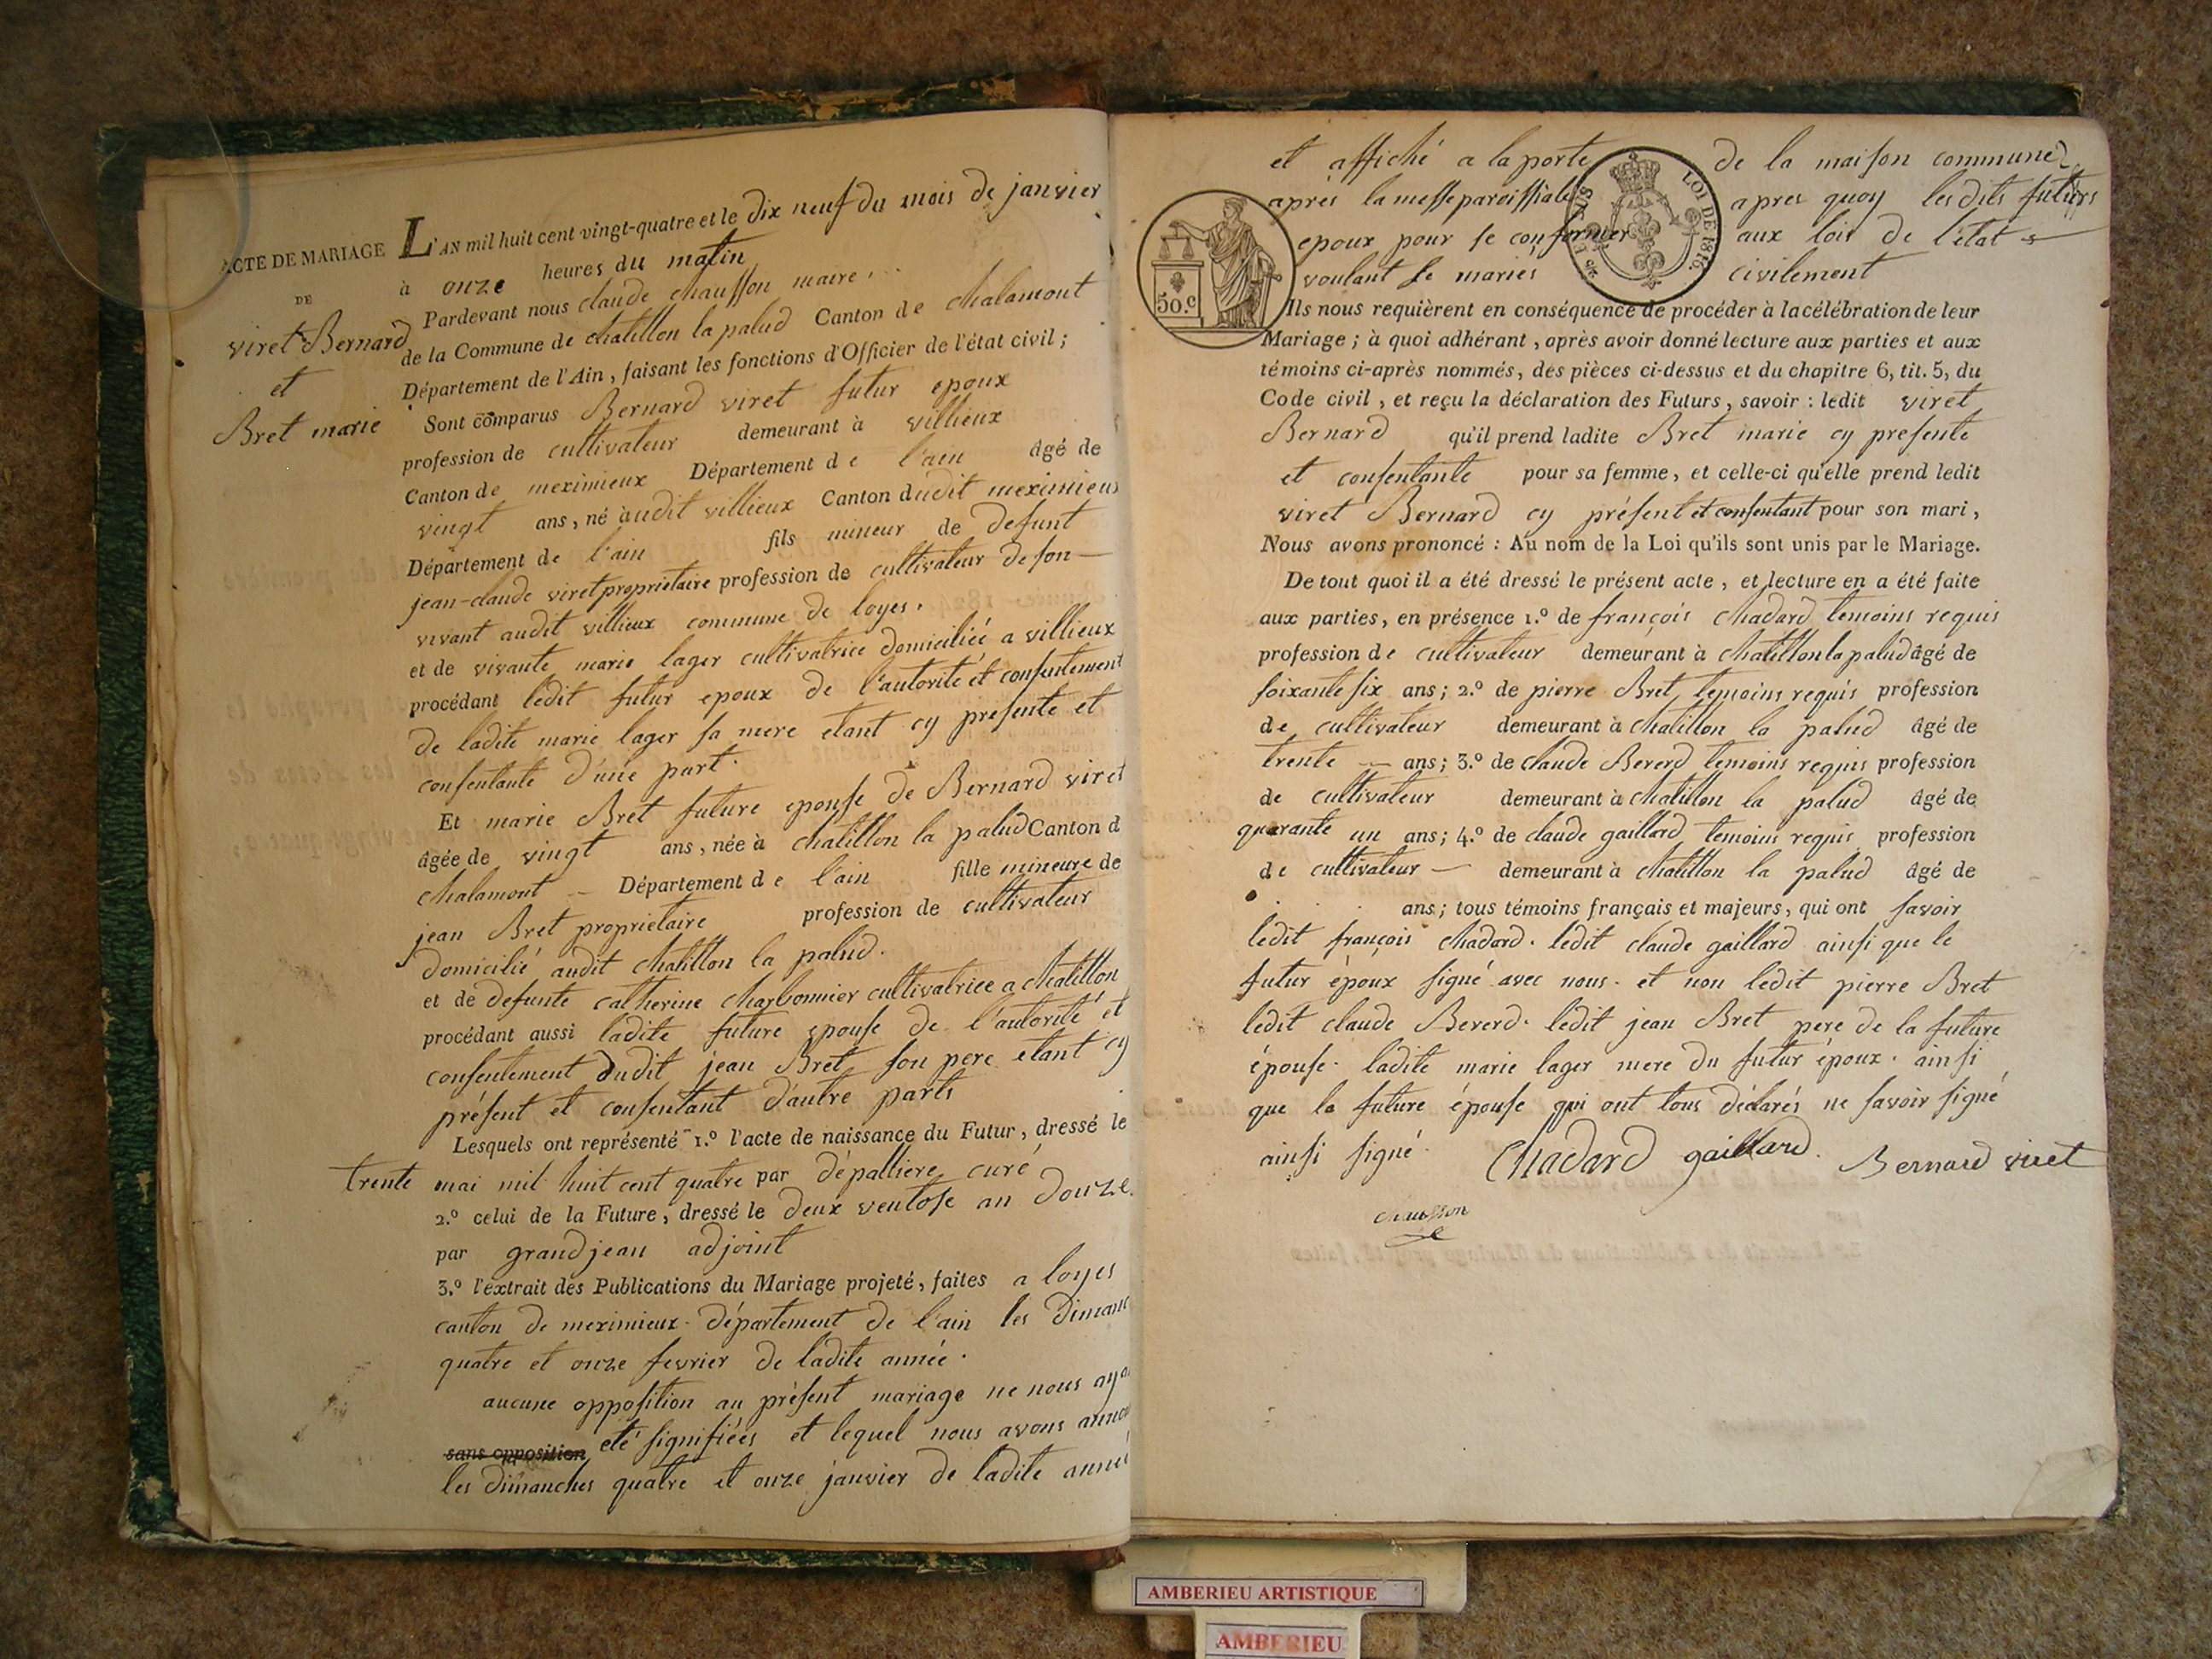 ACTE DE MARIAGE
DE
viret Bernard
et
Bret marie
L'AN mil huit cent vingt-quatre et le dix neuf du mois de janvier
à onze heures du matin
Pardevant nous claude chausson maire
de la Commune de chatillon la palud Canton de chalamont
Département de l'Ain, faisant les fonctions d'Officier de l'état civil ;
Sont comparus Bernard viret futur epoux
profession de cultivateur demeurant à villieux
Canton de meximieux Département de l'ain âgé de
vingt ans, né audit villieux Canton dudit meximieux
Département de l'ain fils mineur de defunt
jean-claude viret propriétaire profession de cultivateur de son
vivant audit villieux commune de loyes.
et de vivante marie lager cultivatrice domiciliée a villieux
procédant ledit futur epoux de l'autorité et consentement
de ladite marie lager sa mere etant cy presente et
consentante d'une part.
Et marie Bret future epouse de Bernard viret
âgée de vingt ans, née à chatillon la palud Canton d
chalamont – Département de l'ain fille mineure de
jean Bret proprietaire profession de cultivateur
domicilié audit chatillon la palud.
et de defunte catherine charbonnier cultivatrice a chatillon
procédant aussi ladite future epouse de l'autorité et
consentement dudit jean Bret son pere etant cy
présent et consentant d'autre parts
Lesquels ont représenté 1.º l'acte de naissance du Futur, dressé le
trente mai mil huit cent quatre par dépalliere curé
2.º celui de la Future, dressé le deux ventose an douze.
par grandjean adjoint
3.º l'extrait des Publications du Mariage projeté, faites a loyes
canton de meximieux. département de l'ain les dimanc
quatre et onze fevrier de ladite année.
aucune opposition au présent mariage ne nous aya
sans opposition eté signifiées et lequel nous avons annon
les dimanches quatre et onze janvier de ladite année
et affiché a la porte de la maison commune
après la messe paroissiale apres quoy lesdits futurs
epoux pour se conformer aux lois de l'état
voulant se mariés civilement
50.c
LOI DE 1816.
Ils nous requièrent en conséquence de procéder à la célébration de leur
Mariage ; à quoi adhérant, après avoir donné lecture aux parties et aux
témoins ci-après nommés, des pièces ci-dessus et du chapitre 6, tit. 5, du
Code civil, et reçu la déclaration des Futurs, savoir : ledit viret
Bernard qu'il prend ladite Bret marie cy presente
et consentante pour sa femme, et celle-ci qu'elle prend ledit
viret Bernard cy présent et consentant pour son mari,
Nous avons prononcé : Au nom de la Loi qu'ils sont unis par le Mariage.
De tout quoi il a été dressé le présent acte, et lecture en a été faite
aux parties, en présence 1.º de françois chadard temoins requis
profession de cultivateur demeurant à chatillon la palud âgé de
soixante six ans ; 2.º de pierre Bret, temoins requis profession
de cultivateur demeurant à chatillon la palud âgé de
trente — ans ; 3.º de claude Bererd temoins requis profession
de cultivateur demeurant à chatillon la palud âgé de
quarante un ans ; 4.º de claude gaillard temoins requis profession
de cultivateur — demeurant à chatillon la palud âgé de
ans ; tous témoins français et majeurs, qui ont savoir
ledit françois chadard. ledit claude gaillard ainsi que le
futur époux signé avec nous. et non ledit pierre Bret
ledit claude Bererd. ledit jean Bret pere de la future
épouse. ladite marie lager mere du futur époux. ainsi
que la future épouse qui ont tous déclarés ne savoir signé
ainsi signé. Chadard gaillard. Bernard viret
chausson
AMBERIEU ARTISTIQUE
AMBERIEU